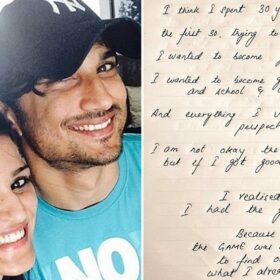 NO
I think I spent 30 y
the first 30, trying to
I wanted to become
I wanted to become g
and school &
And everything I v
perspect
I am not okay the
but if I got good
I realised
I had the g
Because
the GAME was
to find
what I alrea